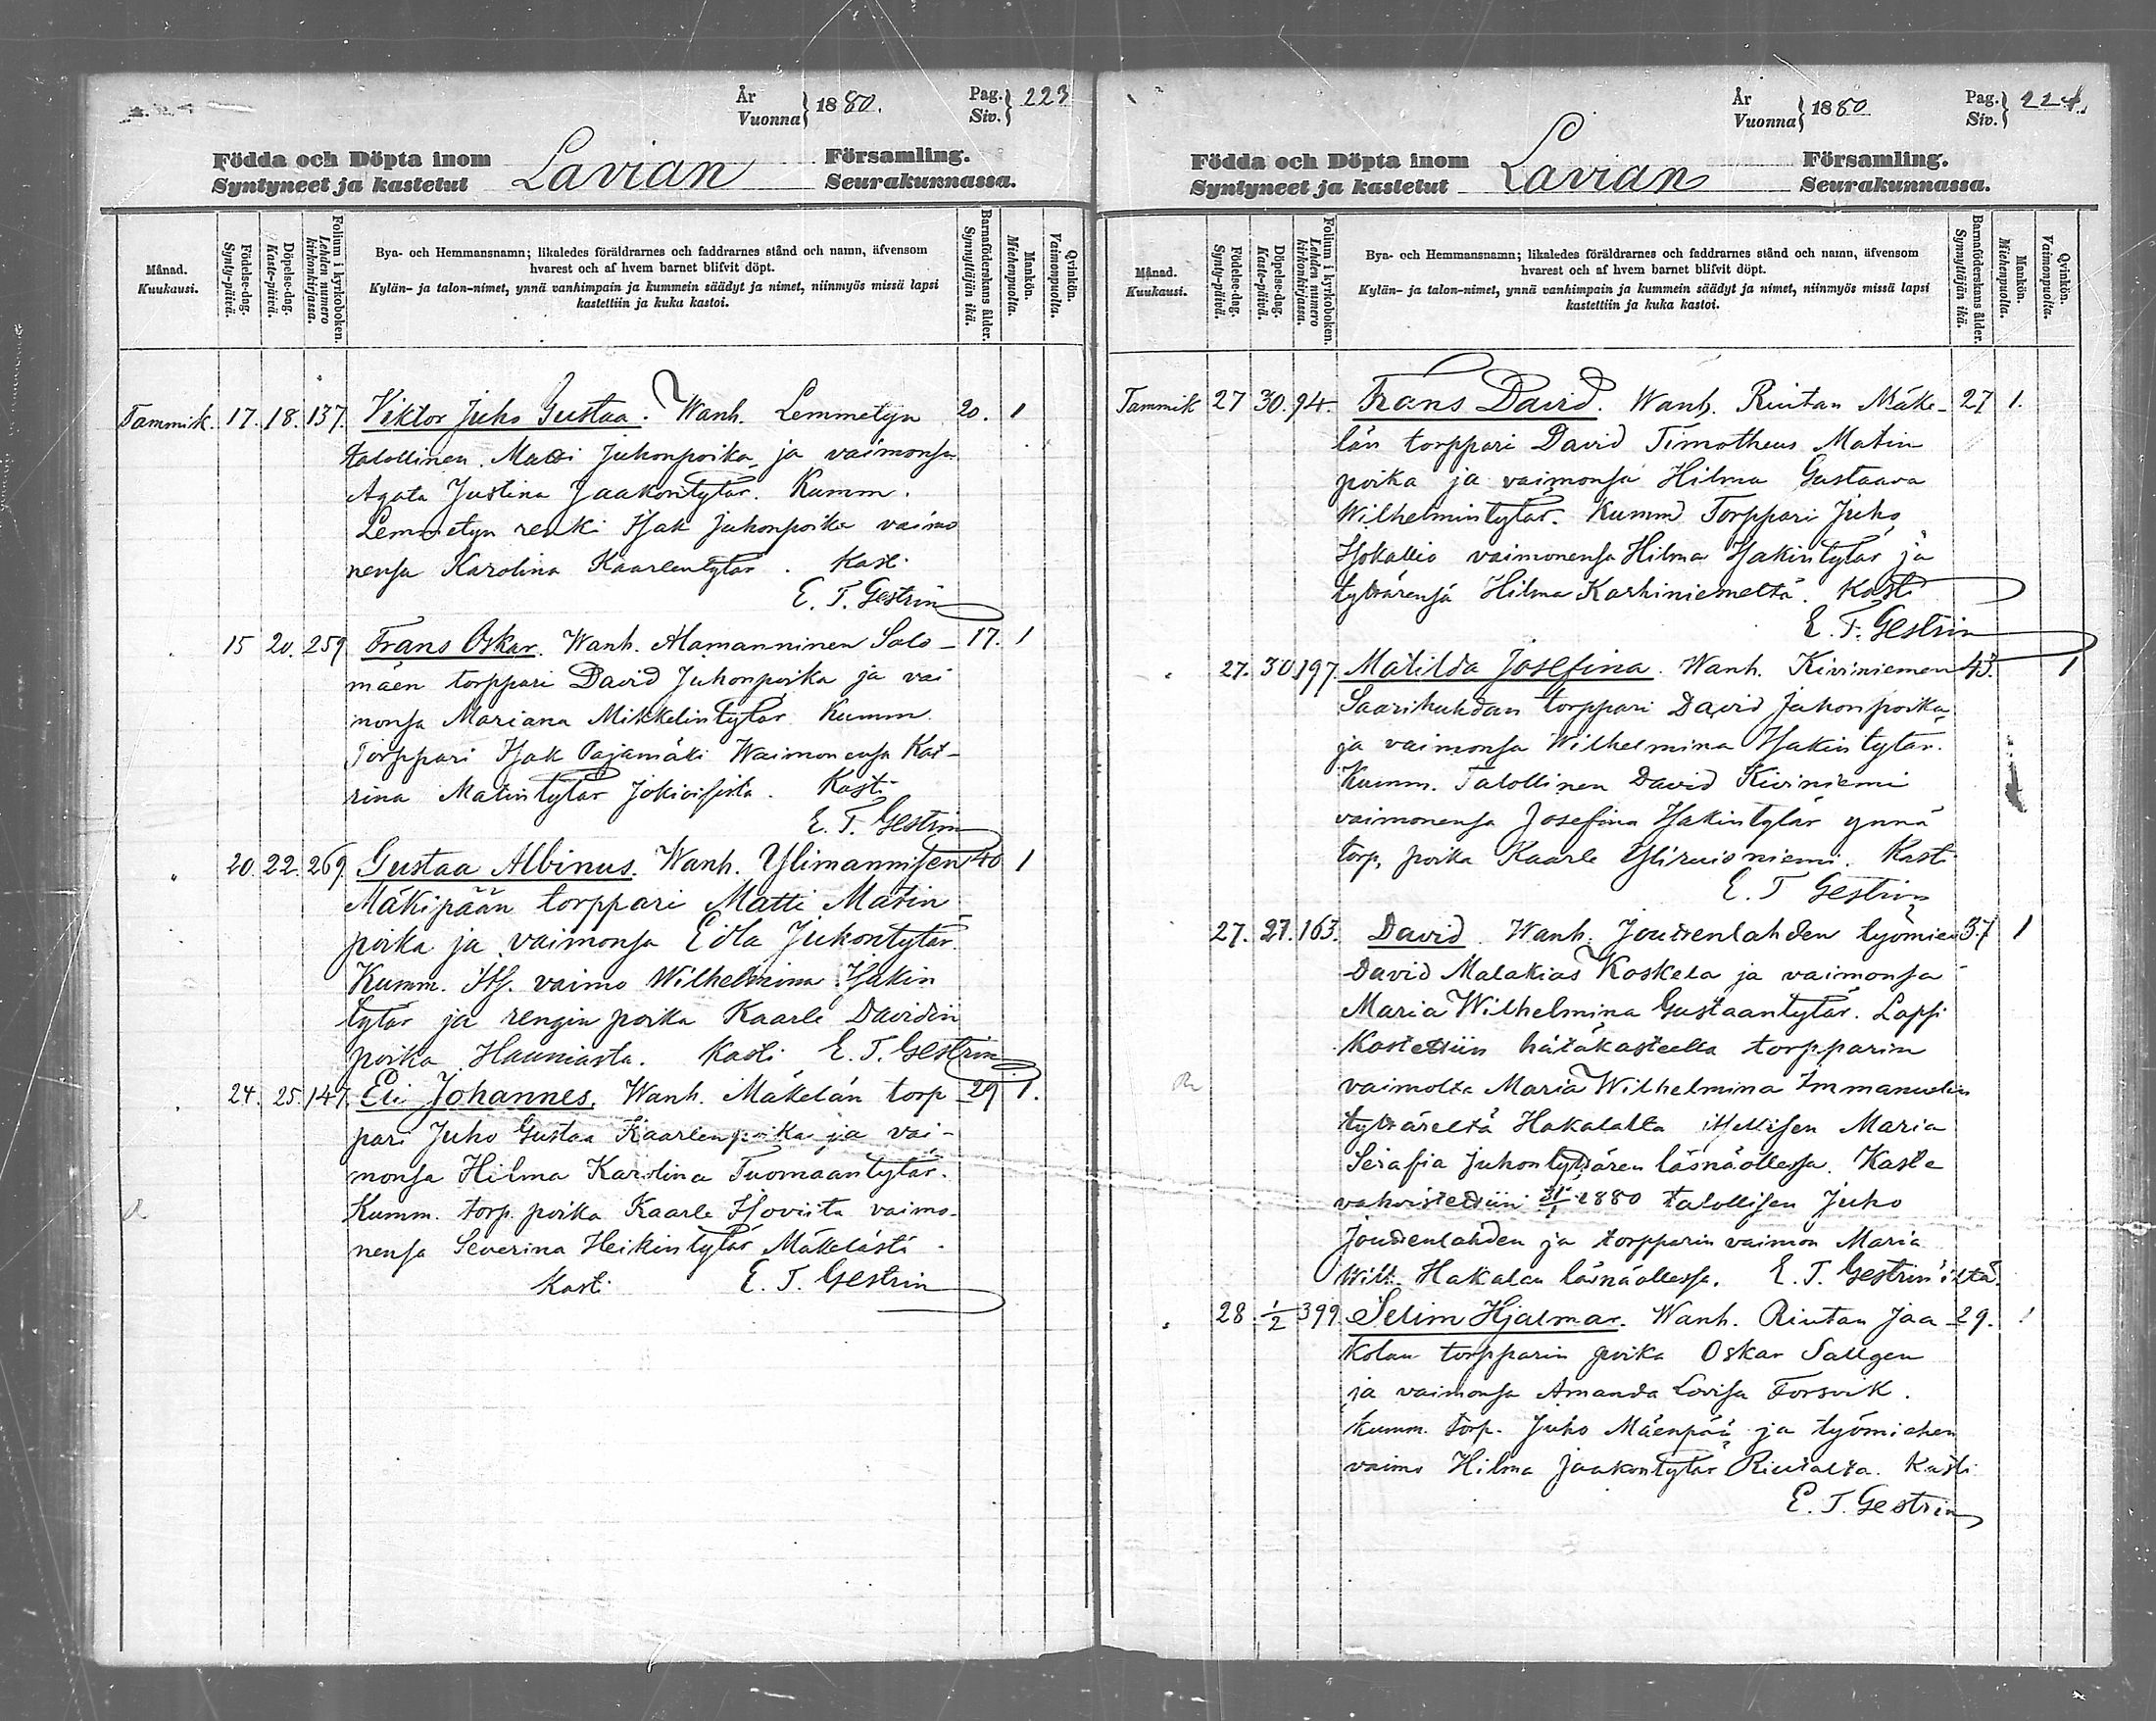 År
Vuonna } 1880.
Pag.
Siv. } 223
Födda och Döpta inom
Syntyneet ja kastetut
Lavian
Församling.
Seurakunnassa.
Månad.
Kuukausi.
Födelse-dag.
Synty-päivä.
Döpelse-dag.
Kaste-päivä.
Folium i kyrkoboken.
Lehden numero
kirkonkirjassa.
Bya- och Hemmansnamn; likaledes föräldrarnes och faddrarnes stånd och namn, äfvensom
hvarest och af hvem barnet blifvit döpt.
Kylän- ja talon-nimet, ynnä vanhimpain ja kummein säädyt ja nimet, niinmyös missä lapsi
kastettiin ja kuka kastoi.
Barnaföderskans ålder.
Synnyttäjän ikä.
Mankön.
Miehenpuolta.
Qvinkön.
Vaimonpuolta.
Tammik. 17. 18. 137. Viktor Juho Gustaa. Wanh. Lemmetyn 20. 1
talollinen Matti Juhonpoika ja vaimonsa
Agata Justina Jaakontytär. Kumm.
Lemmetyn renki Isak Juhonpoika vaimo
nensa Karolina Kaarlentytär. Kast.
E. T. Gestrin
15 20. 259 Frans Oskar. Wanh. Alamanninen Salo- 17. 1
mäen torppari David Juhonpoika ja vai
monsa Mariana Mikkelintytär. Kumm.
Torppari Isak Pajamäki Waimonensa Kat-
rina Matintytär Kasti
E. T. Gestrin
" 20. 22. 269 Gustaa Albinus. Wanh. Ylimannisen 40 1
Mäkipään torppari Matti Matin
poika ja vaimonsa Edla Juhontytär.
Kumm. Its. vaimo Wilhelmina Isakin
tytär ja rengin poika Kaarle Davidin
poika Kasti E. T. Gestrin
24. 25. 147. Eli Johannes. Wanh. Mäkelän torp- 29 1.
pari Juho Gustaa Kaarlenpoika ja vai-
monsa Hilma Karolina Tuomaantytär.
Kumm. torp. poika Kaarle vaimo-
nensa Severina Heikintytär Mäkelästä.
Kasti E. T. Gestrin
År
Vuonna } 1880
Pag.
Siv. } 224.
Födda och Döpta inom
Syntyneet ja kastetut
Lavian
Församling.
Seurakunnassa.
Månad.
Kuukausi.
Födelse-dag.
Synty-päivä.
Döpelse-dag.
Kaste-päivä.
Folium i kyrkoboken.
Lehden numero
kirkonkirjassa.
Bya- och Hemmansnamn; likaledes föräldrarnes och faddrarnes stånd och namn, äfvensom
hvarest och af hvem barnet blifvit döpt.
Kylän- ja talon-nimet, ynnä vanhimpain ja kummein säädyt ja nimet, niinmyös missä lapsi
kastettiin ja kuka kastoi.
Barnaföderskans ålder.
Synnyttäjän ikä.
Mankön.
Miehenpuolta.
Qvinkön.
Vaimonpuolta.
Tammik 27 30. 94. Frans David. Wanh. Riutan Mäke- 27 1.
län torppari David Timotheus Matin
poika ja vaimonsa Hilma Gustaava
Wilhelmintytär. Kumm. Torppari Juho
Isokallio vaimonensa Hilma Isakintytär ja
tyttärensä Hilma Karhiniemeltä. Kasti
E. T. Gestrin
" 27. 30 197. Matilda Josefina. Wanh. Kiviniemen 43. 1
Saarihuhdan torppari David Juhonpoika
ja vaimonsa Wilhelmina Isakintytär.
Kumm. Talollinen David Kiviniemi
vaimonensa Josefina Isakintytär ynnä
torp. poika Kaarle Yliruisniemi. Kasti
E. T Gestrin
27. 27. 163. David. Wanh. Joutenlahden työmies 37 1
David Malakias Koskela ja vaimonsa
Maria Wilhelmina Gustaantytär. Lapsi
Kastettiin hätäkasteella torpparin
vaimolta Maria Wilhelmina Immanuelin
tyttäreltä Hakalalta itsellisen Maria
Serafia Juhontyttären läsnäollessa. Kaste
vahvistettiin 31/1 1880 talollisen Juho
Joutenlahden ja torpparin vaimon Maria
Wilh. Hakalan läsnäollessa. E. T. Gestrin'iltä.
" 28 1/2 399. Selim Hjalmar. Wanh. Riutan Jaa- 29. 1
kolan torpparin poika Oskar Sallgen
ja vaimonsa Amanda Lovisa Forsvik.
Kumm. torp. Juho Mäenpää ja työmiehen
vaimo Hilma Jaakontytär Riutalta. Kasti
E. T. Gestrin